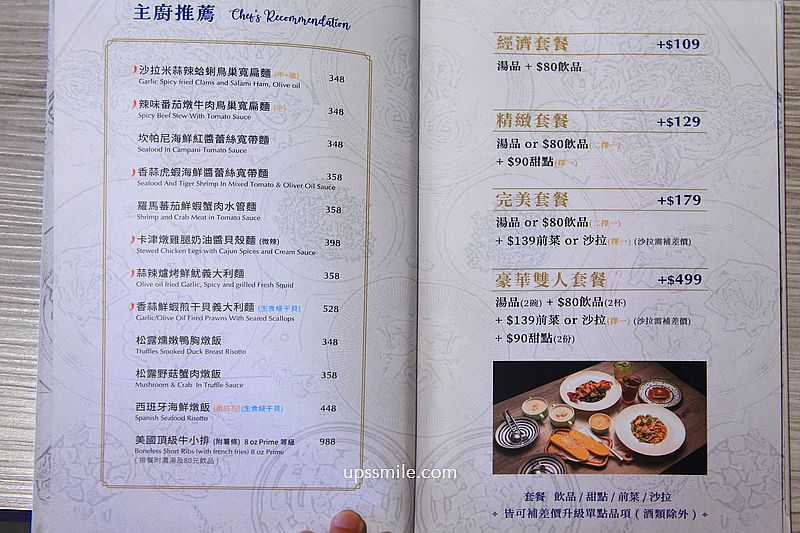 主廚推薦 Chef's Recommendation
沙拉米蒜辣蛤蜊鳥巢寬扁麵 (牛+豬) 348
Garlic Spicy fried Clams and Salami Ham, Olive oil
辣味番茄燉牛肉鳥巢寬扁麵 (牛) 348
Spicy Beef Stew With Tomato Sauce
坎帕尼海鮮紅醬蕾絲寬帶麵 348
Seafood In Campani Tomato Sauce
香蒜虎蝦海鮮醬蕾絲寬帶麵 358
Seafood And Tiger Shrimp In Mixed Tomato & Oliver Oil Sauce
羅馬番茄鮮蝦蟹肉水管麵 358
Shrimp and Crab Meat in Tomato Sauce
卡津燉雞腿奶油醬貝殼麵 (微辣) 398
Stewed Chicken Legs with Cajun Spices and Cream Sauce
蒜辣爐烤鮮魷義大利麵 358
Olive oil fried Garlic, Spicy and grilled Fresh Squid
香蒜鮮蝦煎干貝義大利麵 (生食級干貝) 528
Garlic/Olive Oil Fired Prawns With Seared Scallops
松露燻嫩鴨胸燉飯 348
Truffles Smoked Duck Breast Risotto
松露野菇蟹肉燉飯 358
Mushroom & Crab In Truffle Sauce
西班牙海鮮燉飯 (番紅花)(生食級干貝) 448
Spanish Seafood Risotto
美國頂級牛小排 (附薯條) 8 oz Prime 等級 988
Boneless Short Ribs (with french fries) 8 oz Prime
( 排餐附濃湯及80元飲品 )
經濟套餐 +$109
湯品 + $80飲品
精緻套餐 +$129
湯品 or $80飲品(二擇一)
+ $90甜點(擇一)
完美套餐 +$179
湯品 or $80飲品(二擇一)
+ $139前菜 or 沙拉(擇一) (沙拉需補差價)
豪華雙人套餐 +$499
湯品(2碗) + $80飲品(2杯)
+ $139前菜 or 沙拉(擇一) (沙拉需補差價)
+ $90甜點(2份)
套餐 飲品 / 甜點 / 前菜 / 沙拉
皆可補差價升級單點品項 ( 酒類除外 )
upssmile.com